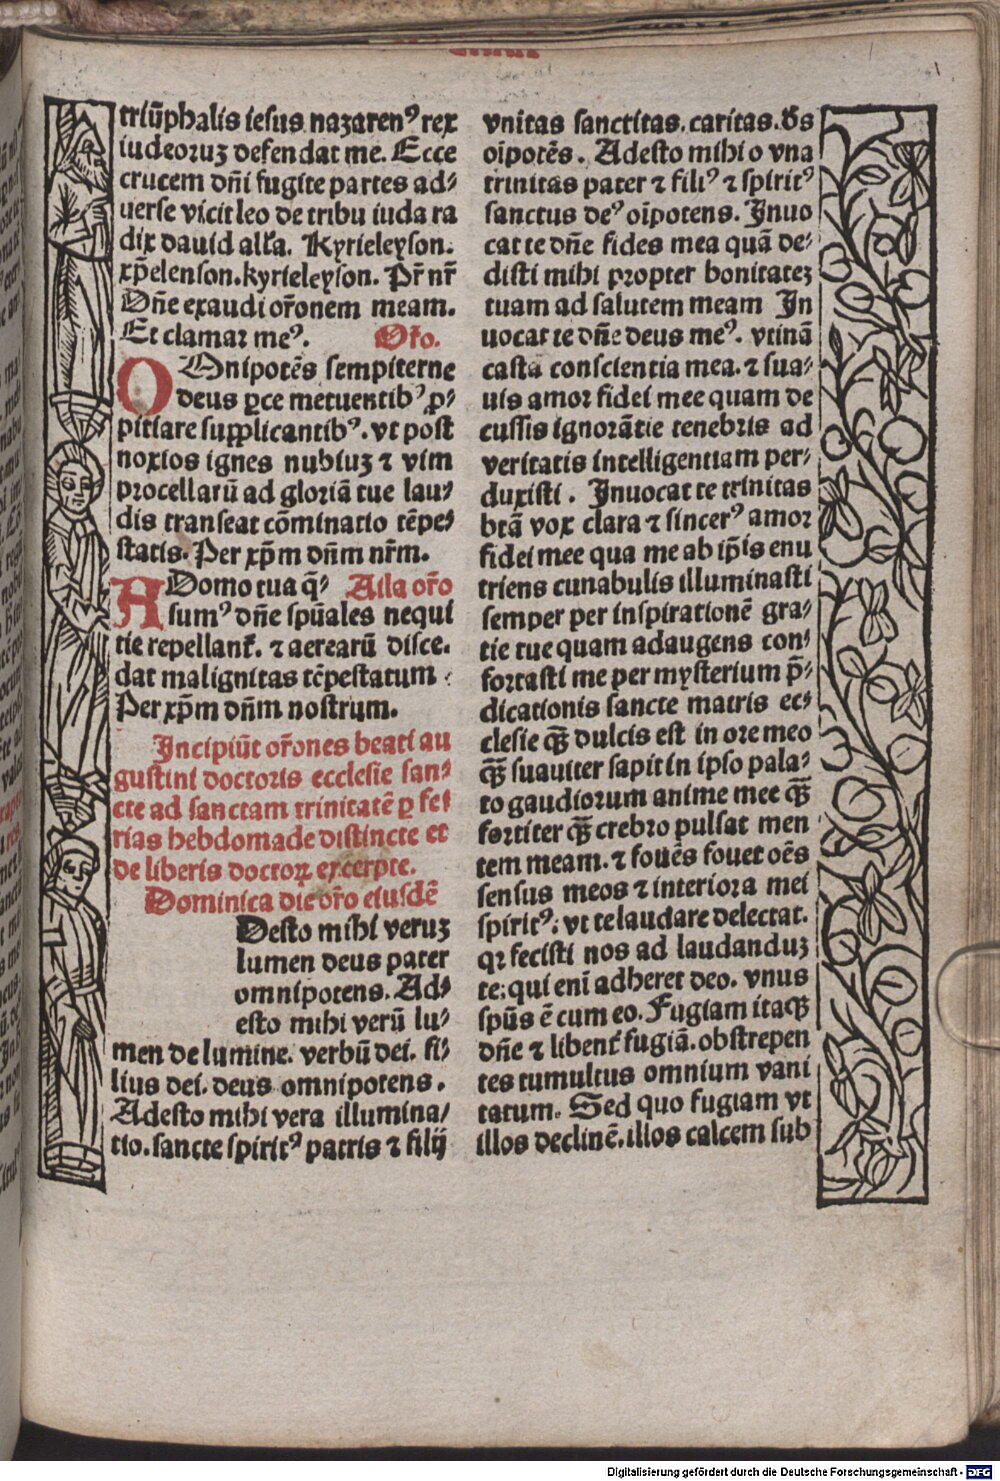 triūphalis iesus nazarenꝰ rex
iudeoruz defendat me. Ecce
crucem dn̄i fugite partes ad⸗
uerse vicit leo de tribu iuda ra
dix dauid all'a. Kyrieleyson.
xp̄elenson. kyrieleyson. Pr̄ nr̄
Dn̄e exaudi or̄onem meam.
Et clamar meꝰ. Or̄o.
OMnipotēs sempiterne
deus ꝑce metuentibꝰ ꝓ⸗
pitiare supplicantibꝰ. vt post
noxios ignes nubiuz ⁊ vim
procellarū ad gloriā tue lau⸗
dis transeat cōminatio tēpe⸗
statis. Per xp̄m dn̄m nr̄m.
ADomo tua q̄⸗ Alia or̄o
sumꝰ dn̄e spūales nequi
tie repellant̄. ⁊ aerearū disce.
dat malignitas tēpestatum
Per xp̄m dn̄m nostrum.
Incipiūt or̄ones beati au
gustini doctoris ecclesie san⸗
cte ad sanctam trinitatē ꝑ fe⸗
rias hebdomade distincte et
de liberis doctoꝝ excerpte.
Dominica die or̄o eiusdē
Desto mihi veruz
lumen deus pater
omnipotens. Ad⸗
esto mihi verū lu⸗
men de lumine. verbū dei. fi⸗
lius dei. deus omnipotens.
Adesto mihi vera illumina⸗
tio. sancte spiritꝰ patris ⁊ filij
vnitas sanctitas. caritas. ds̄
oīpotēs. Adesto mihi o vna
trinitas pater ⁊ filiꝰ ⁊ spiritꝰ
sanctus deꝰ oīpotens. Inuo
cat te dn̄e fides mea quā de⸗
disti mihi propter bonitatez
tuam ad salutem meam In
uocat te dn̄e deus meꝰ. vtinā
casta conscientia mea. ⁊ sua⸗
uis amor fidei mee quam de
cussis ignorātie tenebris ad
veritatis intelligentiam per⸗
duxisti. Inuocat te trinitas
btā vox clara ⁊ sincerꝰ amor
fidei mee qua me ab ip̄is enu
triens cunabulis illuminasti
semper per inspirationē gra⸗
tie tue quam adaugens con⸗
fortasti me per mysterium p̄⸗
dicationis sancte matris ec⸗
clesie qꝫ̄ dulcis est in ore meo
qꝫ̄ suauiter sapit in ipso pala⸗
to gaudiorum anime mee qꝫ̄
fortiter qꝫ̄ crebro pulsat men
tem meam. ⁊ fouēs fouet oēs
sensus meos ⁊ interiora mei
spiritꝰ: vt te laudare delectat.
qꝛ fecisti nos ad laudanduz
te: qui eni adheret deo. vnus
spūs ē cum eo. Fugiam itaqꝫ
dn̄e ⁊ libent̄ fugiā. obstrepen
tes tumultus omnium vani
tatum. Sed quo fugiam vt
illos declinē. illos calcem sub
Digitalisierung gefördert durch die Deutsche Forschungsgemeinschaft - DFG